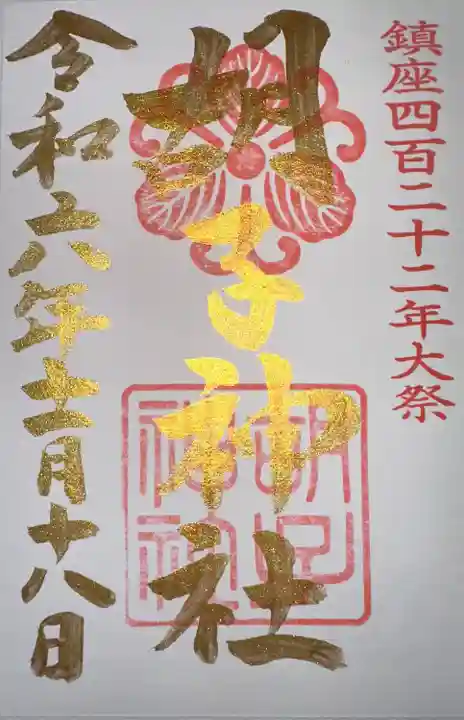 鎮座四百二十二年大祭
胡子神社
令和六年十一月十八日
胡子神社